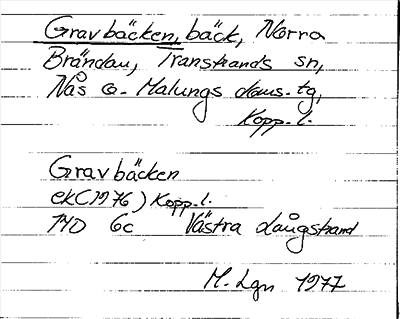 Gravbäcken, bäck, Norra
Brändan, Transtrands sn,
Nås o. Malungs doms. tg,
Kopp. l.
Gravbäcken
ek(1976) Kopp. l.
14D 6c Västra Långstrand
M. Lgn 1977